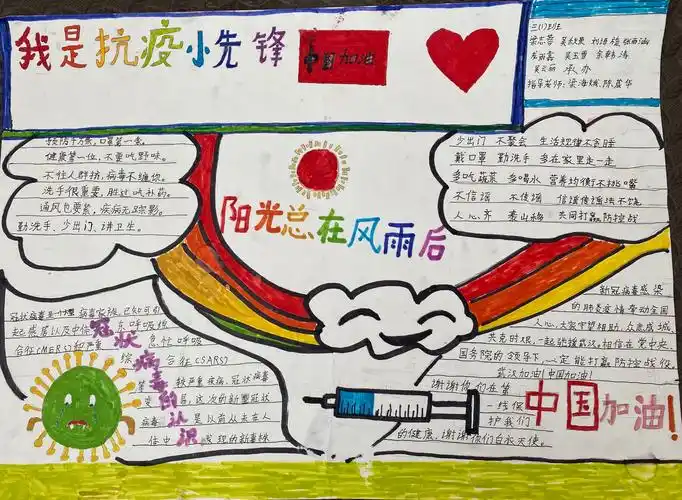 我是抗疫小先锋
中国加油
三(1)班
指导老师:梁海斌 陈嘉华
预防千万条,口罩第一条。
健康第一位,不要吃野味。
不往人群挤,病毒不缠你。
洗手很重要,胜过吃补药。
通风也要紧,疾病无踪影。
勤洗手、少出门、讲卫生。
少出门 不聚会 生活规律不贪睡
戴口罩 勤洗手 多在家里走一走
多吃蔬菜 多喝水 营养均衡不挑嘴
不信谣 不传谣
人心齐 泰山移 共同打赢防控战
阳光总在风雨后
冠状病毒的认识
冠状病毒是一个大型病毒家族,已知可引
起感冒以及中东呼吸综
合征(MERS)和严重急性呼吸
综合征(SARS)
等较严重疾病。冠状病毒
这次的新型冠状
病毒是以前从未在人
体中发现的新毒株
新冠病毒感染
的肺炎疫情牵动全国
人心,大家守望相助、众志成城,
共克时艰,一起张援武汉,相信在党中央、
国务院的领导下,一定能打赢防控战役,
武汉加油!中国加油!
谢谢你们在第
一线保
护我们
的健康,谢谢你们白衣天使。
中国加油!